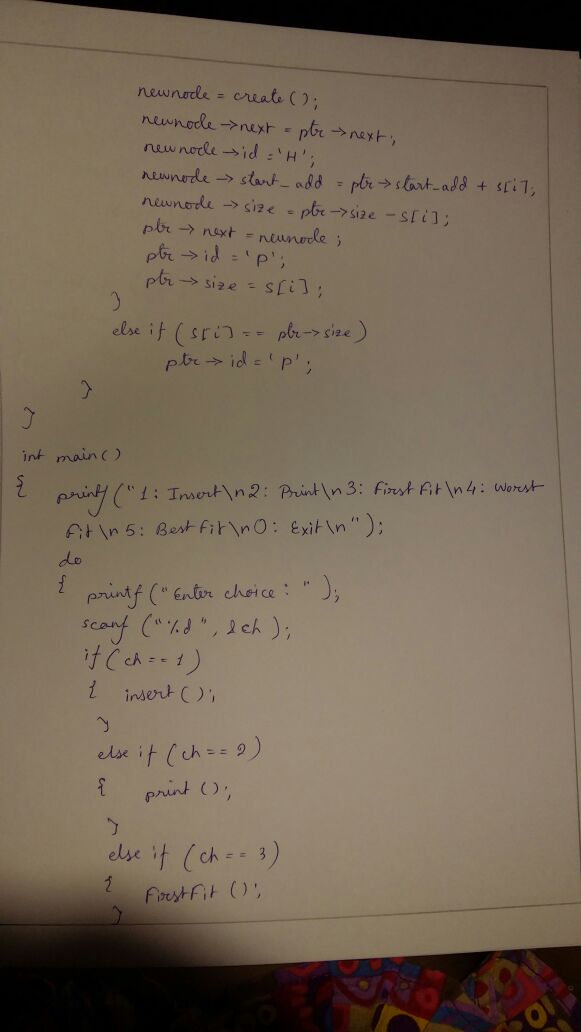 newnode = create();
newnode->next = ptr->next;
newnode->id = 'H';
newnode->start_add = ptr->start_add + s[i];
newnode->size = ptr->size - s[i];
ptr->next = newnode;
ptr->id = 'P';
ptr->size = s[i];
}
else if (s[i] == ptr->size)
ptr->id = 'P';
}
}
int main()
{ printf("1: Insert\n2: Print\n3: First Fit\n4: Worst
Fit\n5: Best Fit\n0: Exit\n");
do
{ printf("Enter choice: ");
scanf("%d", &ch);
if(ch == 1)
{ insert();
}
else if (ch == 2)
{ print();
}
else if (ch == 3)
{ FirstFit();
}